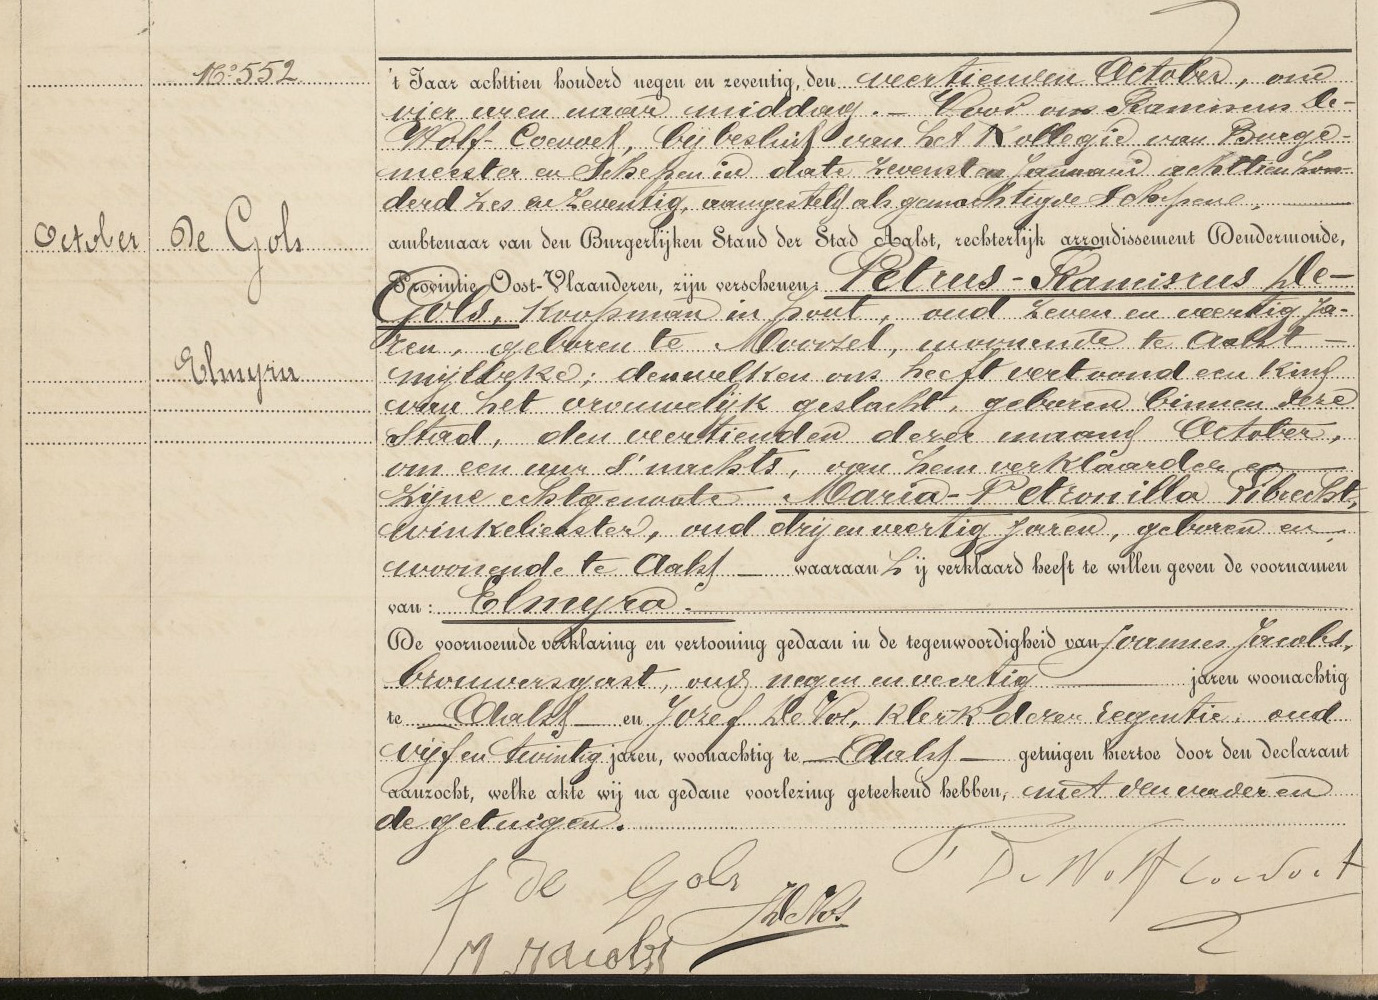 No. 552
't Jaar achttien honderd negen en zeventig, den veertienden October, om
vier uren naar middag. — Voor ons Franciscus De-
Wolf-Coevoet, bij besluit van het Kollegie van Burge-
meester en Schepen in date zevensten Januarii achttien hon-
derd zes en zeventig, aangesteld als gemachtigde Schepene,
ambtenaar van den Burgerlijken Stand der Stad Aalst, rechterlijk arrondissement Dendermonde,
October
De Gols
Provintie Oost-Vlaanderen, zijn verschenen: Petrus-Franciscus De-
Gols, Koopman in hout, oud zeven en veertig ja-
ren, geboren te Moorsel, woonende te Aalst —
Elmyra
Mijlbeke; denwelken ons heeft vertoond een Kind
van het vrouwelijk geslacht, geboren binnen deze
Stad, den veertienden dezer maand October,
om een uur s'nachts, van hem verklaarder en
zijne echtgenoote Maria-Petronilla Librecht,
winkelierster, oud drij en veertig jaren, geboren en
woonende te Aalst — waaraan zij verklaard heeft te willen geven de voornamen
van: Elmyra.
De voornoemde verklaring en vertooning gedaan in de tegenwoordigheid van Joannes Jacobs,
brouwersgast, oud negen en veertig — jaren woonachtig
te — Aalst — en Jozef De Vos, klerk dezer regentie, oud
vijf en twintig jaren, woonachtig te — Aalst — getuigen hiertoe door den declarant
aanzocht, welke akte wij na gedane voorlezing geteekend hebben, met den vader en
de getuigen.
F De Wolf Coevoet
f de Gols
J De Vos
Jacobs